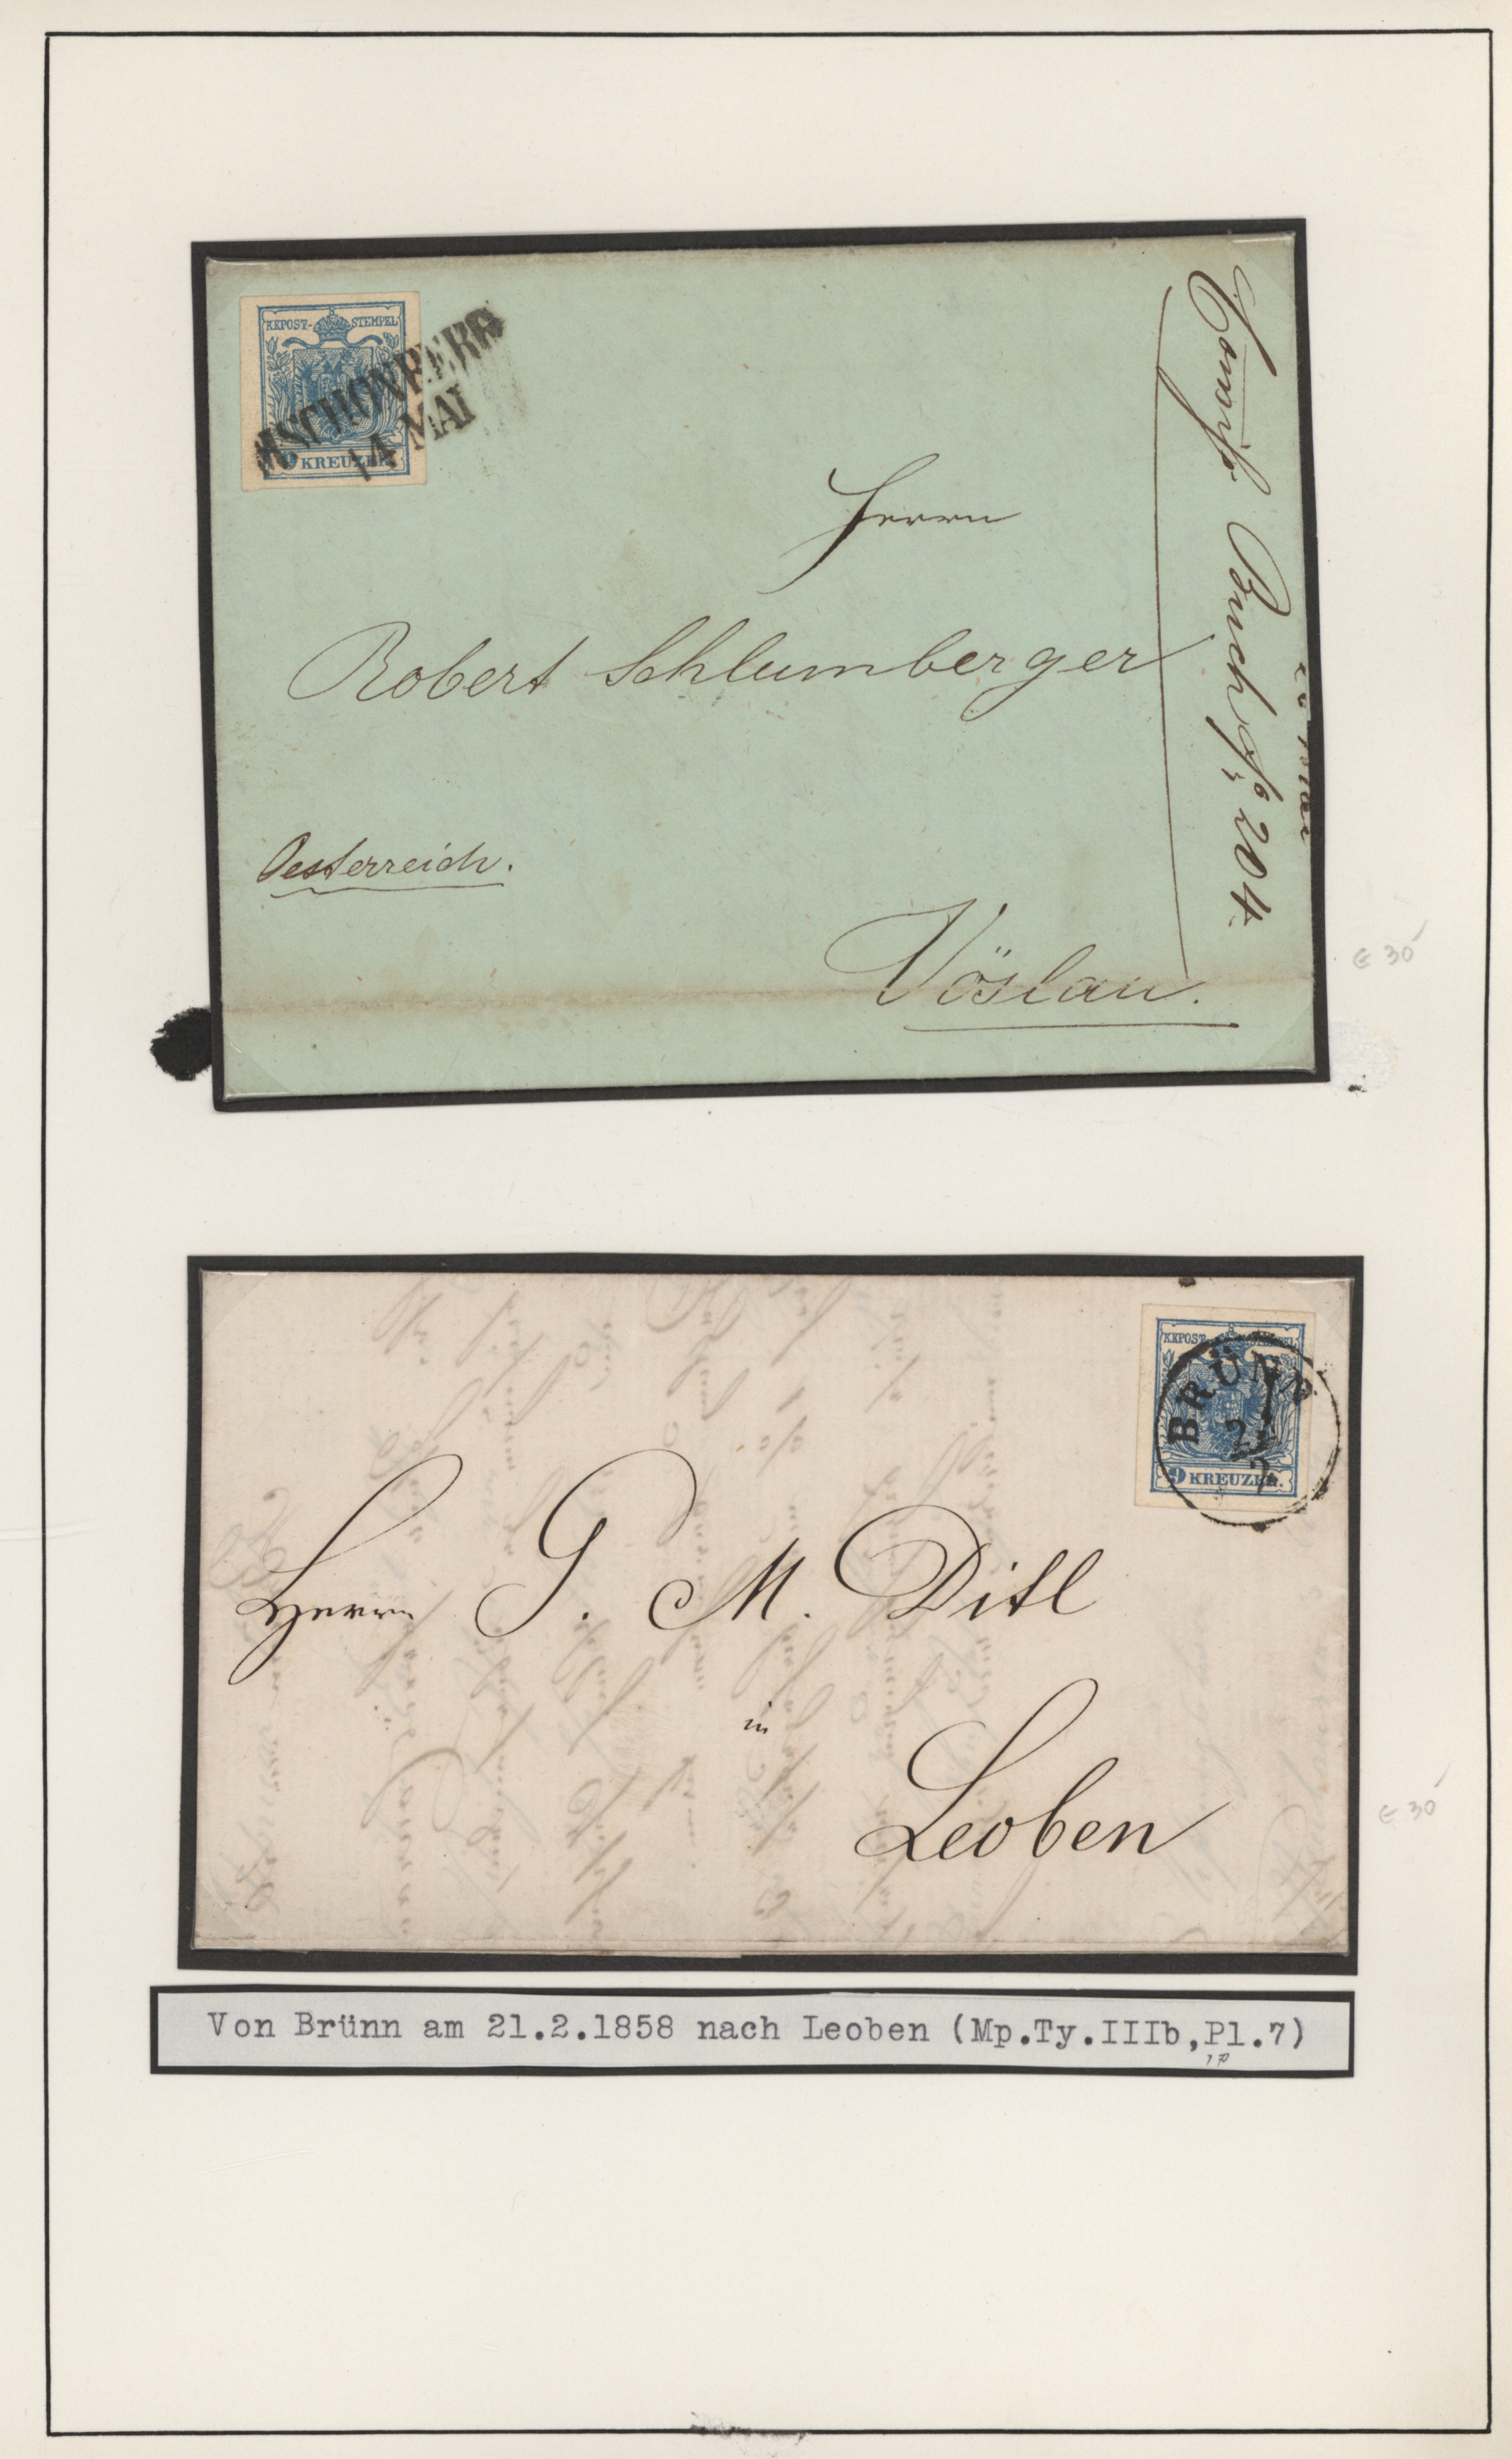 KKPOST-STEMPEL
M.SCHÖNBERG
14 MAI
9 KREUZER.
Herrn
Robert Schlumberger
Oesterreich.
Vöslau.
Buch No 204
€ 30
KKPOST-STEMPEL
BRÜNN
21
2
9 KREUZER.
Herrn G. M. Ditl
in
Leoben
€ 30
Von Brünn am 21.2.1858 nach Leoben (Mp.Ty.IIIb,Pl.7)